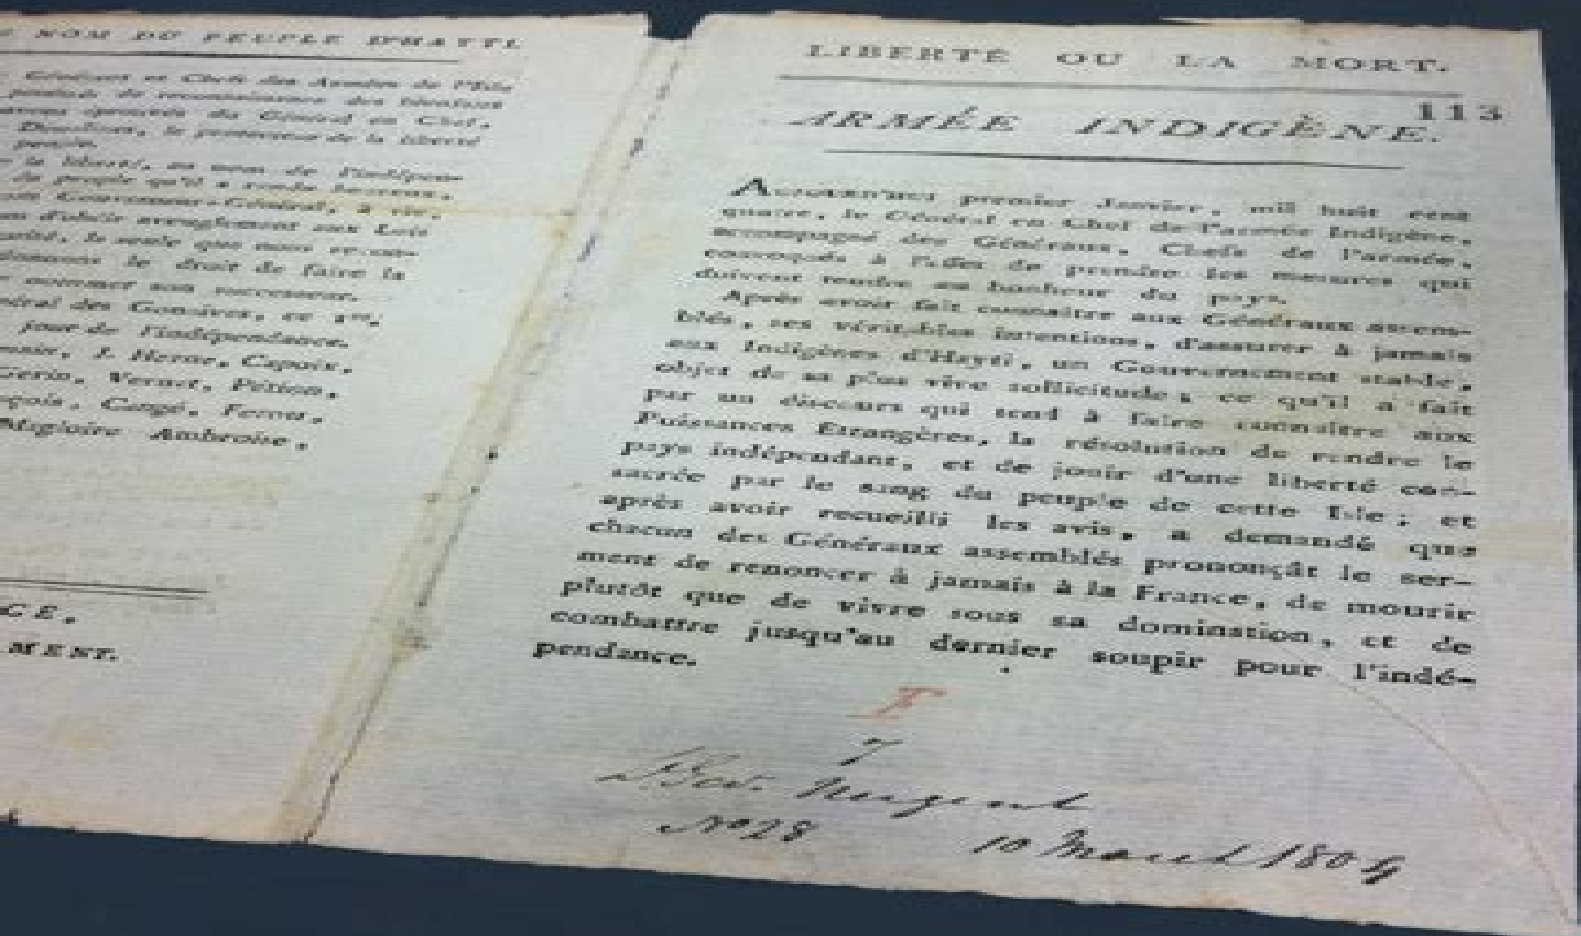 NOM DU PEUPLE D'HAYTI.
Généraux et Chefs des Armées de l'Isle
pénétrés de reconnaissance des bienfaits
éprouvés du Général en Chef,
Dessalines, le protecteur de la liberté
peuple.
la liberté, au nom de l'indépen-
du peuple qu'il a rendu heureux,
Gouverneur-Général, à vie,
d'obéir aveuglément aux Lois
autorité, la seule que nous
donnons le droit de faire la
nommer son successeur.
des Gonaïves, ce 1er.
jour de l'indépendance.
J. Herne, Capoix,
Gerin, Vernet, Pétion,
Cangé, Ferou,
Magloire Ambroise,
CE,
MENT.
LIBERTÉ OU LA MORT.
113
ARMÉE INDIGÈNE.
AUJOURD'HUI premier Janvier, mil huit cent
quatre, le Général en Chef de l'armée Indigène,
accompagné des Généraux, Chefs de l'armée,
convoqués à l'effet de prendre les mesures qui
doivent tendre au bonheur du pays.
Après avoir fait connaître aux Généraux assem-
blés, ses véritables intentions, d'assurer à jamais
aux Indigènes d'Hayti, un Gouvernement stable,
objet de sa plus vive sollicitude; ce qu'il a fait
par un discours qui tend à faire connaître aux
Puissances Etrangères, la résolution de rendre le
pays indépendant, et de jouir d'une liberté con-
sacrée par le sang du peuple de cette Isle; et
après avoir recueilli les avis, a demandé que
chacun des Généraux assemblés prononçât le ser-
ment de renoncer à jamais à la France, de mourir
plutôt que de vivre sous sa domination, et de
combattre jusqu'au dernier soupir pour l'indé-
pendance.
Nugent
No 28 10 March 1804